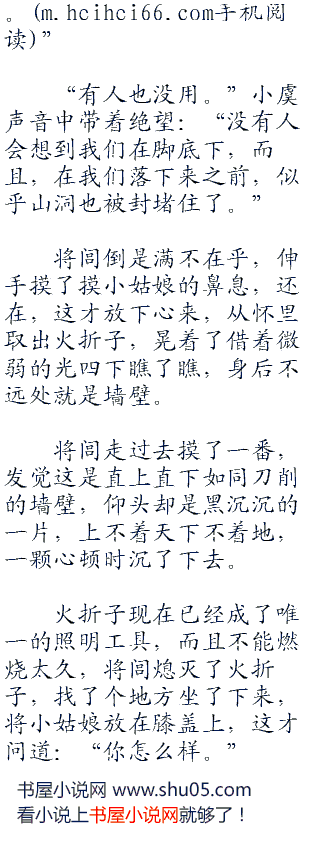 。(m.hcihci66.com手机阅
读)”
“有人也没用。”小虞
声音中带着绝望：“没有人
会想到我们在脚底下，而
且，在我们落下来之前，似
乎山洞也被封堵住了。”
将闾倒是满不在乎，伸
手摸了摸小姑娘的鼻息，还
在，这才放下心来，从怀里
取出火折子，晃着了借着微
弱的光四下瞧了瞧，身后不
远处就是墙壁。
将闾走过去摸了一番，
发觉这是直上直下如同刀削
的墙壁，仰头却是黑沉沉的
一片，上不着天下不着地，
一颗心顿时沉了下去。
火折子现在已经成了唯
一的照明工具，而且不能燃
烧太久，将闾熄灭了火折
子，找了个地方坐了下来，
将小姑娘放在膝盖上，这才
问道：“你怎么样。”
书屋小说网 www.shu05.com
看小说上书屋小说网就够了！